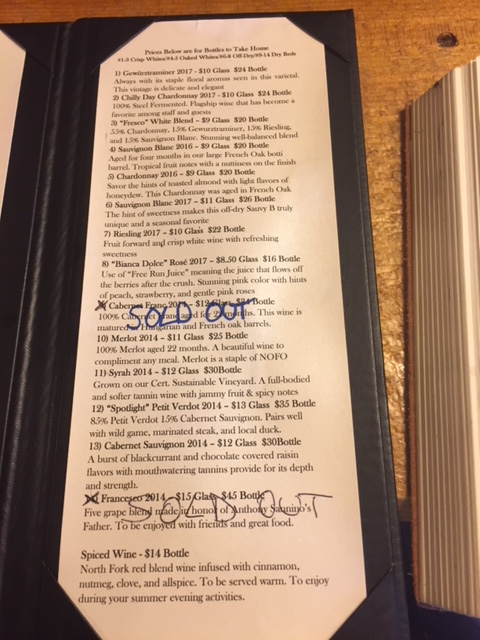 Prices Below are for Bottles to Take Home
#1-3 Crisp Whites/#4-5 Oaked Whites/#6-8 Off-Dry/#9-14 Dry Reds
1) Gewürztraminer 2017 - $10 Glass $24 Bottle
Always with its staple floral aromas seen in this varietal.
This vintage is delicate and elegant
2) Chilly Day Chardonnay 2017 - $10 Glass $24 Bottle
100% Steel Fermented. Flagship wine that has become a
favorite among staff and guests
3) "Fresco" White Blend – $9 Glass $20 Bottle
55% Chardonnay, 15% Gewurztraminer, 15% Riesling,
and 15% Sauvignon Blanc. Stunning well-balanced blend
4) Sauvignon Blanc 2016 – $9 Glass $20 Bottle
Aged for four months in our large French Oak botti
barrel. Tropical fruit notes with a nuttiness on the finish
5) Chardonnay 2016 – $9 Glass $20 Bottle
Savor the hints of toasted almond with light flavors of
honeydew. This Chardonnay was aged in French Oak
6) Sauvignon Blanc 2017 – $11 Glass $26 Bottle
The hint of sweetness makes this off-dry Sauvy B truly
unique and a seasonal favorite
7) Riesling 2017 – $10 Glass $22 Bottle
Fruit forward and crisp white wine with refreshing
sweetness
8) "Bianca Dolce" Rosé 2017 – $8.50 Glass $16 Bottle
Use of "Free Run Juice" meaning the juice that flows off
the berries after the crush. Stunning pink color with hints
of peach, strawberry, and gentle pink roses
Cabernet Franc - $12 Glass Bottle
SOLD OUT
100% Cabernet Franc aged for months. This wine is
matured Hungarian and French oak barrels.
10) Merlot 2014 – $11 Glass $25 Bottle
100% Merlot aged 22 months. A beautiful wine to
compliment any meal. Merlot is a staple of NOFO
11) Syrah 2014 – $12 Glass $30Bottle
Grown on our Cert. Sustainable Vineyard. A full-bodied
and softer tannin wine with jammy fruit & spicy notes
12) "Spotlight" Petit Verdot 2014 – $13 Glass $35 Bottle
85% Petit Verdot 15% Cabernet Sauvignon. Pairs well
with wild game, marinated steak, and local duck.
13) Cabernet Sauvignon 2014 – $12 Glass $30Bottle
A burst of blackcurrant and chocolate covered raisin
flavors with mouthwatering tannins provide for its depth
and strength.
Francesco 2014 - $15 Glass $45 Bottle
SOLD OUT
Five grape blend made in honor of Anthony Sannino's
Father. To be enjoyed with friends and great food.
Spiced Wine - $14 Bottle
North Fork red blend wine infused with cinnamon,
nutmeg, clove, and allspice. To be served warm. To enjoy
during your summer evening activities.